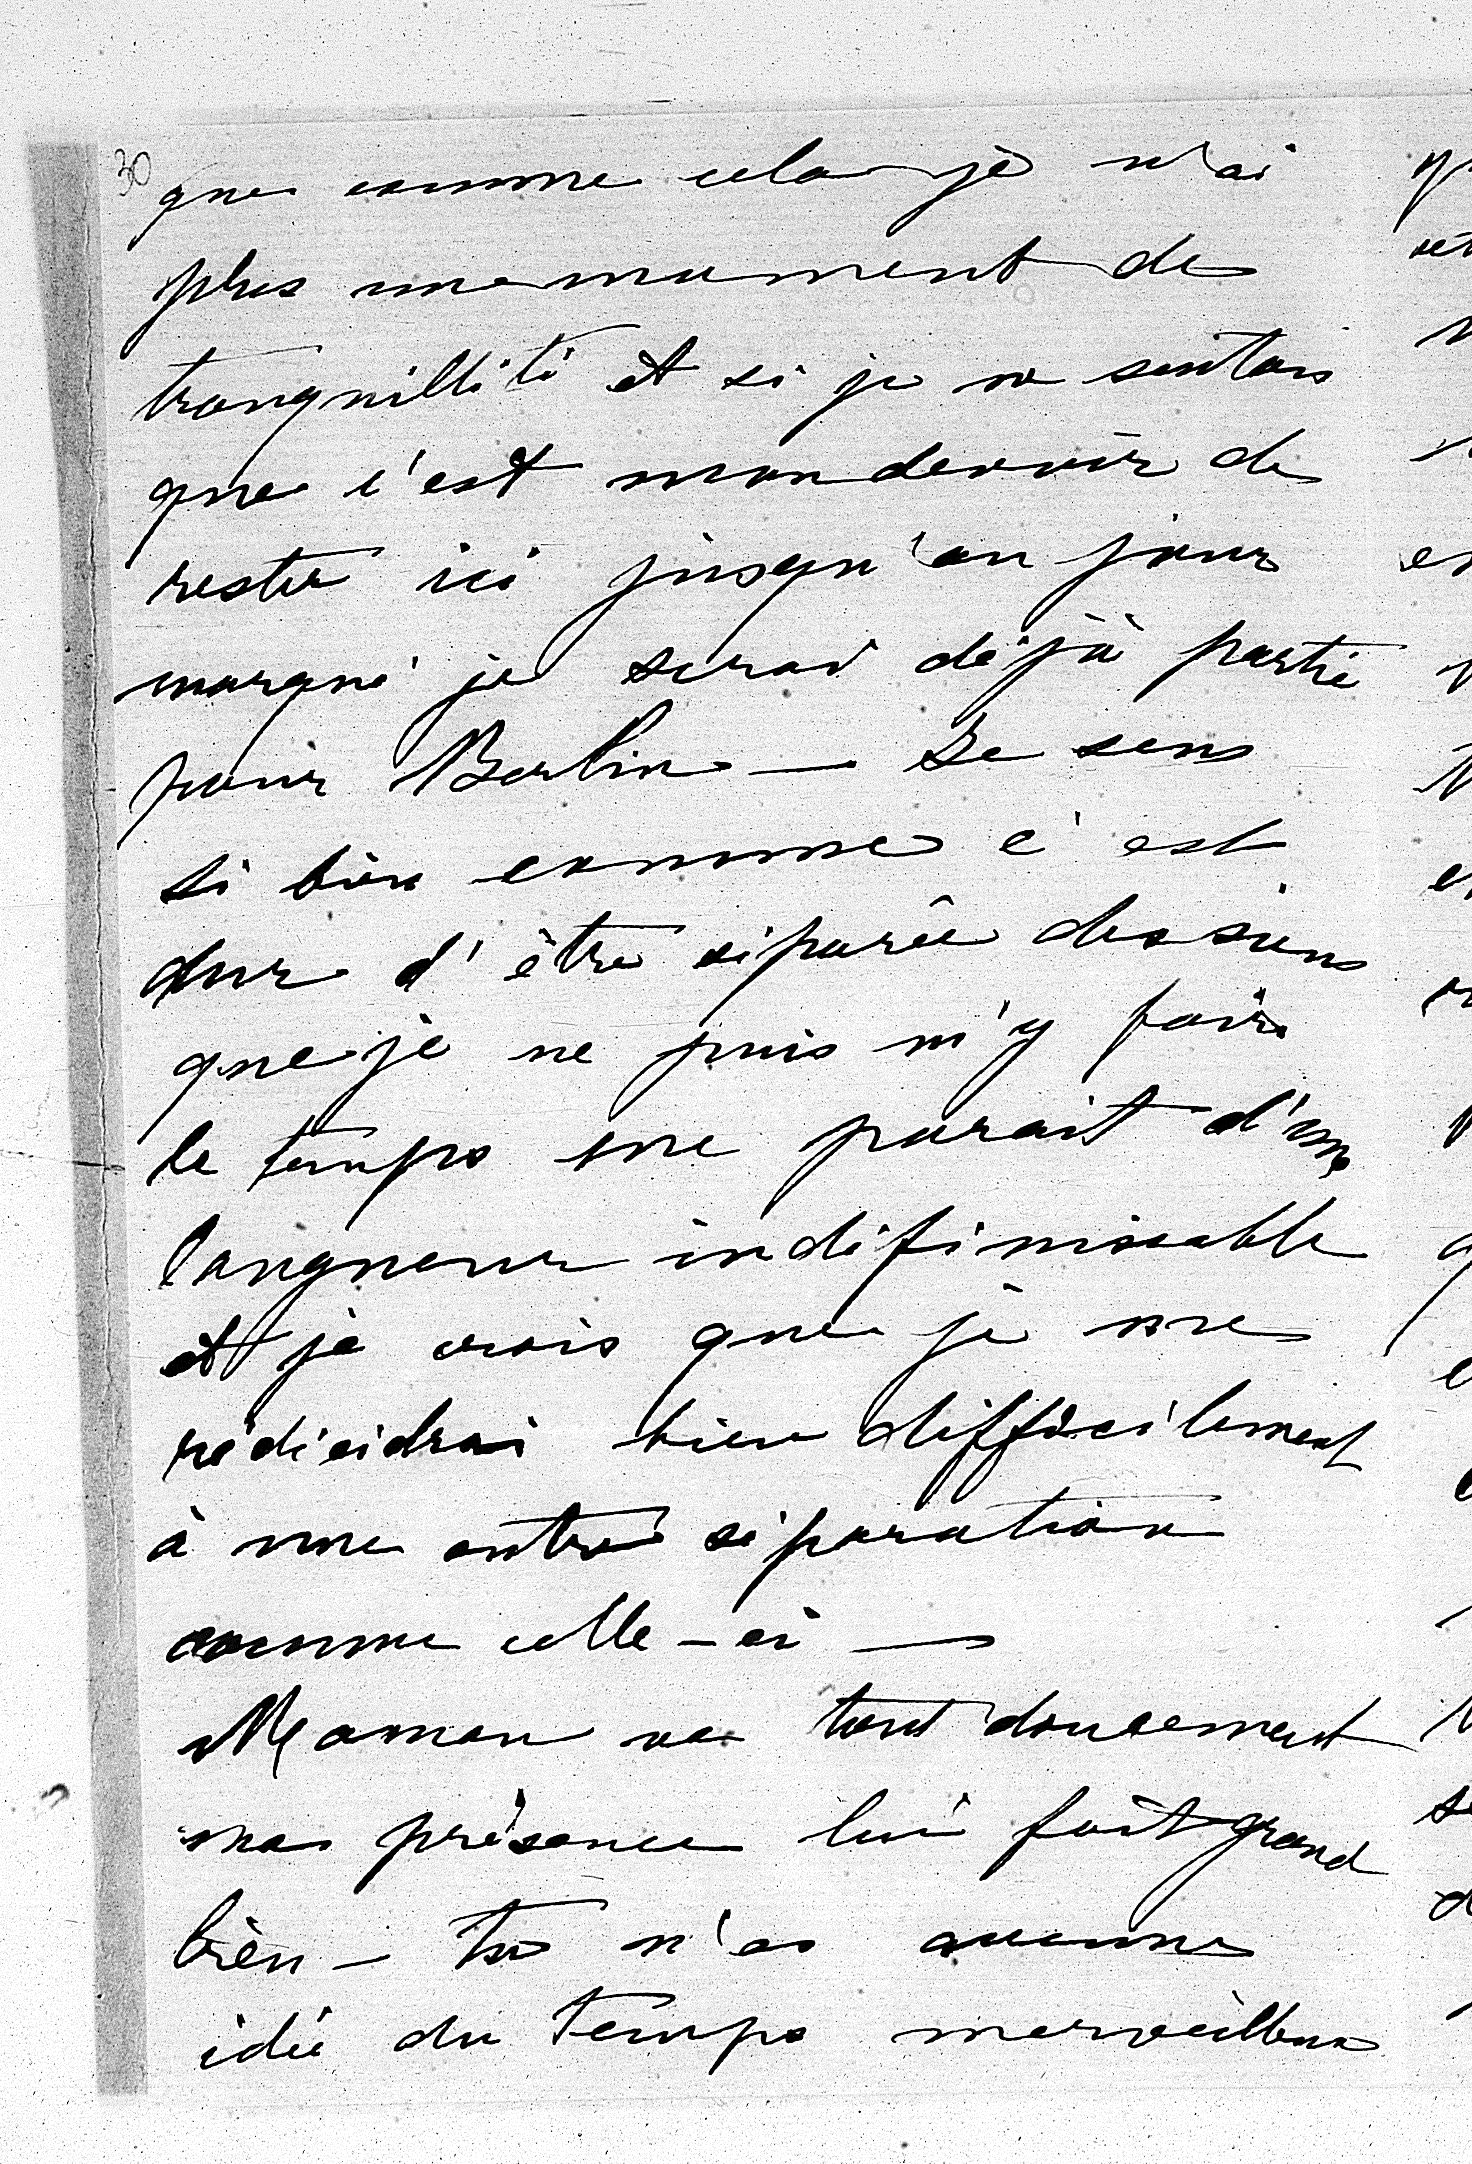 30
que comme cela je n'ai
plus un moment de
tranquillité et si je ne sentais
que c'est mon devoir de
rester ici jusqu'au jour
marqué je serai déjà partie
pour Berlin — Je sens
si bien comme c'est
dur d'être séparée des siens
que je ne puis m'y faire
le temps me parait d'une
longueur indéfinissable
et je crois que je me
rédéciderai bien difficilement
à une autre séparation
comme celle-ci —
Maman va tout doucement
ma présence lui fait grand
bien — tu n'as aucune
idée du temps merveilleux